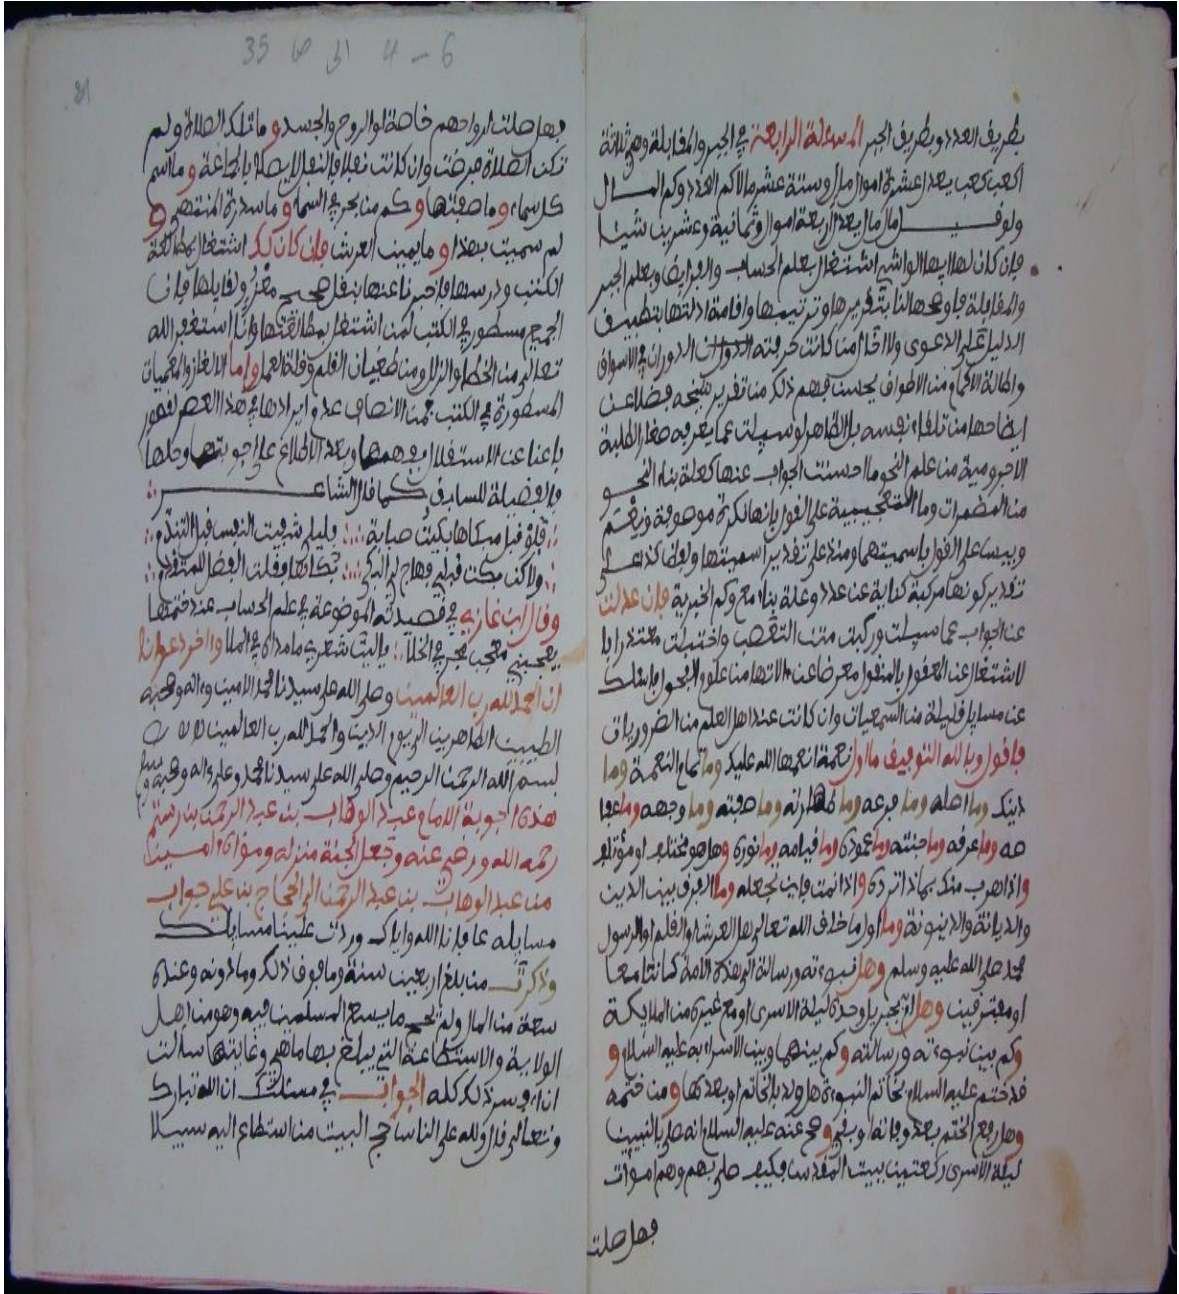 بطريق العدد وبطريق الجبر المسئلة الرابعة في الجبر والمقابلة وهي ثلاثة
اكعب كعب يعد اعشرة اموال مال وستة عشر مالا كم العدد وكم المال
ولو فيل مال مال يعد اربعة اموال وثمانية وعشرين شيئا
فإن كان لهاايها الواشي اشتغال بعلم الحساب والفرايض وبعلم الجبر
والمقابلة فاوضحها لنا بتقريرها وترتيبها واقامة ادلتها بتطبيق
الدليل على الدعوى ولا اخال من كانت حرفته الدوران في الاسواق
واطالة الاكمام من الاطواف يحسن فهم ذلك من تقرير شيخه فضلا عن
ايضاحها من تلقاء نفسه بل الظاهر لو سيلت عما يعرفه صغار الطلبة
الاجرومية من علم النحو ما احسنت الجواب عنها كعلة بناء النحو
من المضمرات وما التعجيبية على القول بانها نكرة موصوفة ونعم
وبيس على القول باسميتهما ومنذ على تقدير اسميتها ولفظ كذا على
تقدير كونها مركبة كناية عن عدد وعلة بناء مع وكم الخبرية فإن عدلت
عن الجواب عما سيلت وركبت متن التعصب واختبلت معتذرا با
لاشتغال عن المعقول بالمنقول معرضا عن الاتها من علوم الفحول فاسئلك
عن مسايل قليلة من السمعيات وان كانت عند اهل العلم من الضروريات
فاقول وبالله التوفيق ما اول نعمة انعمها الله عليك وما تمام النعمة وما
دينك وما اصله وما فرعه وما طهارته وما صفته وما وجهه وما عفا
صه وما عرفه وما جنته وما عموده وما قيامه وما نوره وهل هو مختلف او مؤتلف
واذا هرب منك بماذا ترده واذا نمت فاين تجعله وما الفرق بين الدين
والديانة والدينونة وما اول ما خلق الله تعالى هل العرش او القلم او الرسول
محمد صلى الله عليه وسلم وهل نبوءته ورسالة الى هذه الامة كانتا معا
او مفترقين وهل اتى جبريل وحده ليلة الاسرى او مع غيره من الملايكة
وكم بين نبوءته ورسالته وكم بينهما وبين الاسراء به عليه السلام و
قد ختم عليه السلام بخاتم النبوءة هل ولد بالخاتم او بعدها ومن ختمه
وهل رفع الختم بعد وفاته او بقي وصح عنه عليه السلام انه صلى بالنبيين
ليلة الاسرى ركعتين ببيت المقدس فكيف صلى بهم وهم اموات
فهل صلت
35 ق الى 4 - 6
فهل صلت ارواحهم خاصة او الروح والجسد وما تلك الصلاة ولم
تكن الصلاة فرضت وان كانت نفلا فالنفل لا يصلا بالجماعة وما اسم
كل سماء وما صفتها وكم من بحر في السماء وما سدرة المنتهى و
لم سميت بهذا وما يمين العرش فإن كان لك اشتغال بمطالعة
الكتب ودرسها فاخبرنا عنها بنقل صحيح معزو لقايلها فإن
الجميع مسطور في الكتب لمن اشتغل بمطالعتها وانا استغفر الله
تعالى من الخطا والزلل ومن طغيان القلم وقلة العمل واما الالغاز والمعميات
المسطورة في الكتب فمن الانصاف عدم ايرادها في هذا العصر لقصور
باعنا عن الاستقلال بفهمها وبعد الاطلاع على اجوبتها وحلها
فالفضيلة للسابق كما قال الشاعر
فلو قبل مبكاها بكيت صبابة بليلى شفيت النفس قبل التندم
ولاكن بكت قبلي فهاج لي البكى بكاؤها وقلت الفضل للمتقدم
وقال ابن غازيه في قصيدته الموضوعة في علم الحساب عند ختمتها
يعجبني معجب مجر في الخلا ياليت شعري مامداه في الملا واخر دعوانا
ان الحمد لله رب العالمين وصلى الله على سيدنا محمد الامين وءاله وصحبه
الطيبين الطاهرين الى يوم الدين والحمد لله رب العالمين
بسم الله الرحمن الرحيم وصلى الله على سيدنا محمد وعلى ءاله وصحبه وسلم
هذه اجوبة الامام عبد الوهاب بن عبد الرحمن بن رستم
رحمه الله ورضي عنه وجعل الجنة منزله ومؤاه امين
من عبد الوهاب بن عبد الرحمن الى الحجاج بن علي جواب
مسايله عافانا الله واياك وردت علينا مسايلك
وذكرت من بلغ اربعين سنة وما فوق ذلك وما دونه وعنده
سعة من المال ولم يحج ما يسع المسلمين فيه وهو من اهل
الولاية والاستطاعة التي يبلغ بها ما هي وغايتها سالت
ان افسر ذلك كله الجواب في مسئلتك ان الله تبارك
وتعالى قال ولله على الناس حج البيت من استطاع اليه سبيلا